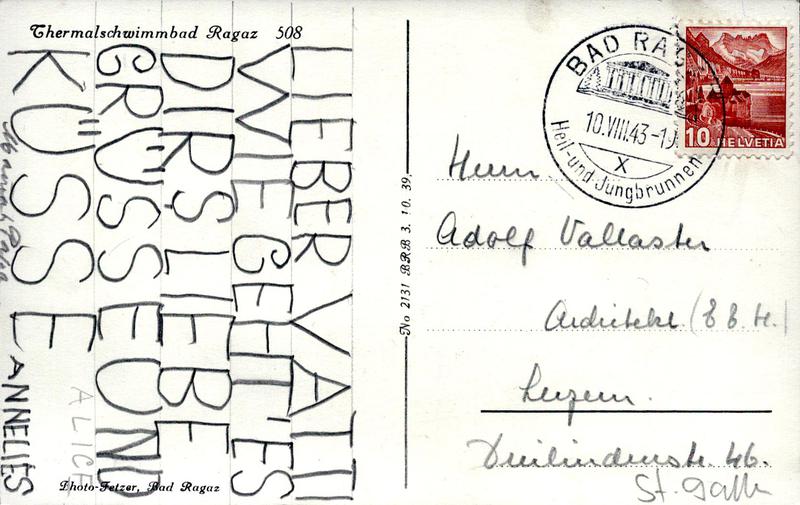 Thermalschwimmbad Ragaz 508
LIEBER VATI!
WIE GEHT'ES
DIR? LIEBE
GRÜSSE UND
KÜSSE
ALICE
ANNELIES
Photo-Fetzer, Bad Ragaz
No 2131 BRB 3. 10. 39.
BAD RAGAZ
10.VIII.43-19
X
Heil-und Jungbrunnen
10 HELVETIA
Herrn
Adolf Vallaster
Architekt
Luzern.
Dreilindenstr. 46.
St. Galle